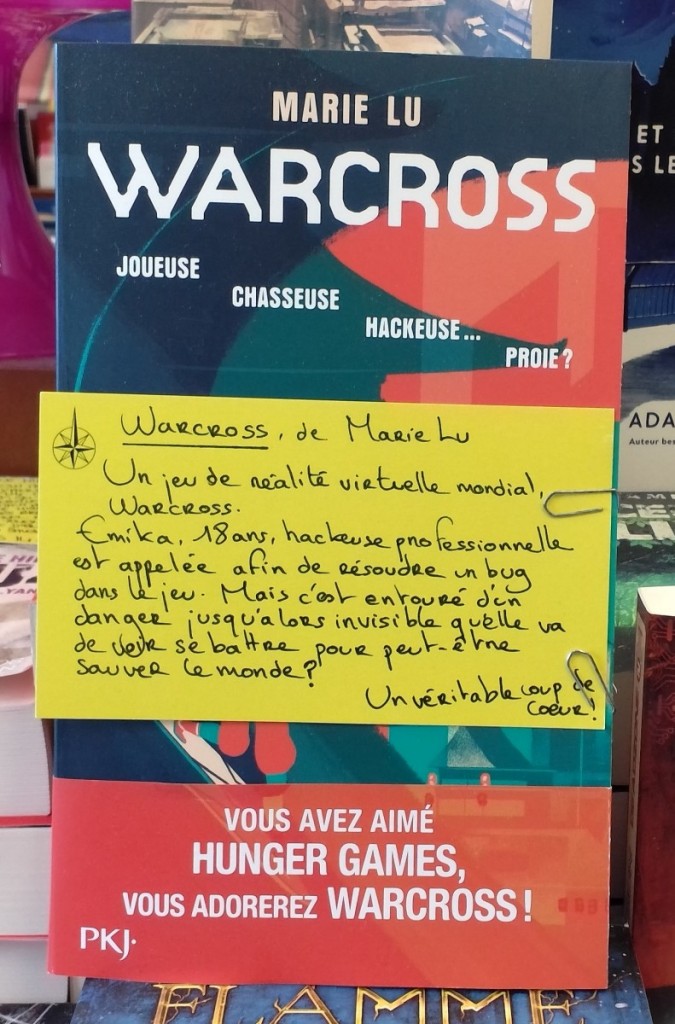 MARIE LU
WARCROSS
JOUEUSE
CHASSEUSE
HACKEUSE...
PROIE ?
Warcross, de Marie Lu
Un jeu de réalité virtuelle mondial,
Warcross.
Emika, 18 ans, hackeuse professionnelle
est appelée afin de résoudre un bug
dans le jeu. Mais c'est entouré d'un
danger jusqu'alors invisible qu'elle va
de voir se battre pour peut-être
sauver le monde?
Un véritable coup de
coeur!
VOUS AVEZ AIMÉ
HUNGER GAMES,
VOUS ADOREREZ WARCROSS !
PKJ.
ET
S LE
ADA
Auteur bes
FLAMME